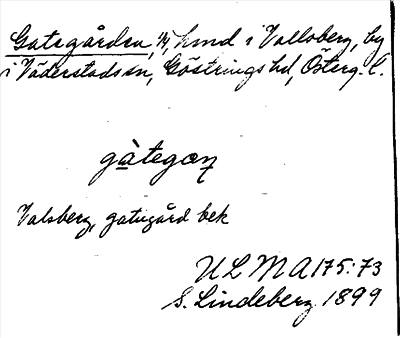 Gategården, 1/1, hmd i Vallsberg, by
i Väderstads sn, Göstrings hd, Österg. l.
gàtegaɳ
Valsberg, gatugård bek
ULMA 175:73
S. Lindeberg 1899